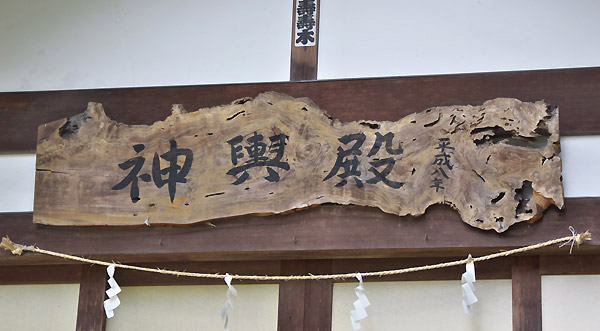 神輿殿
平成八年